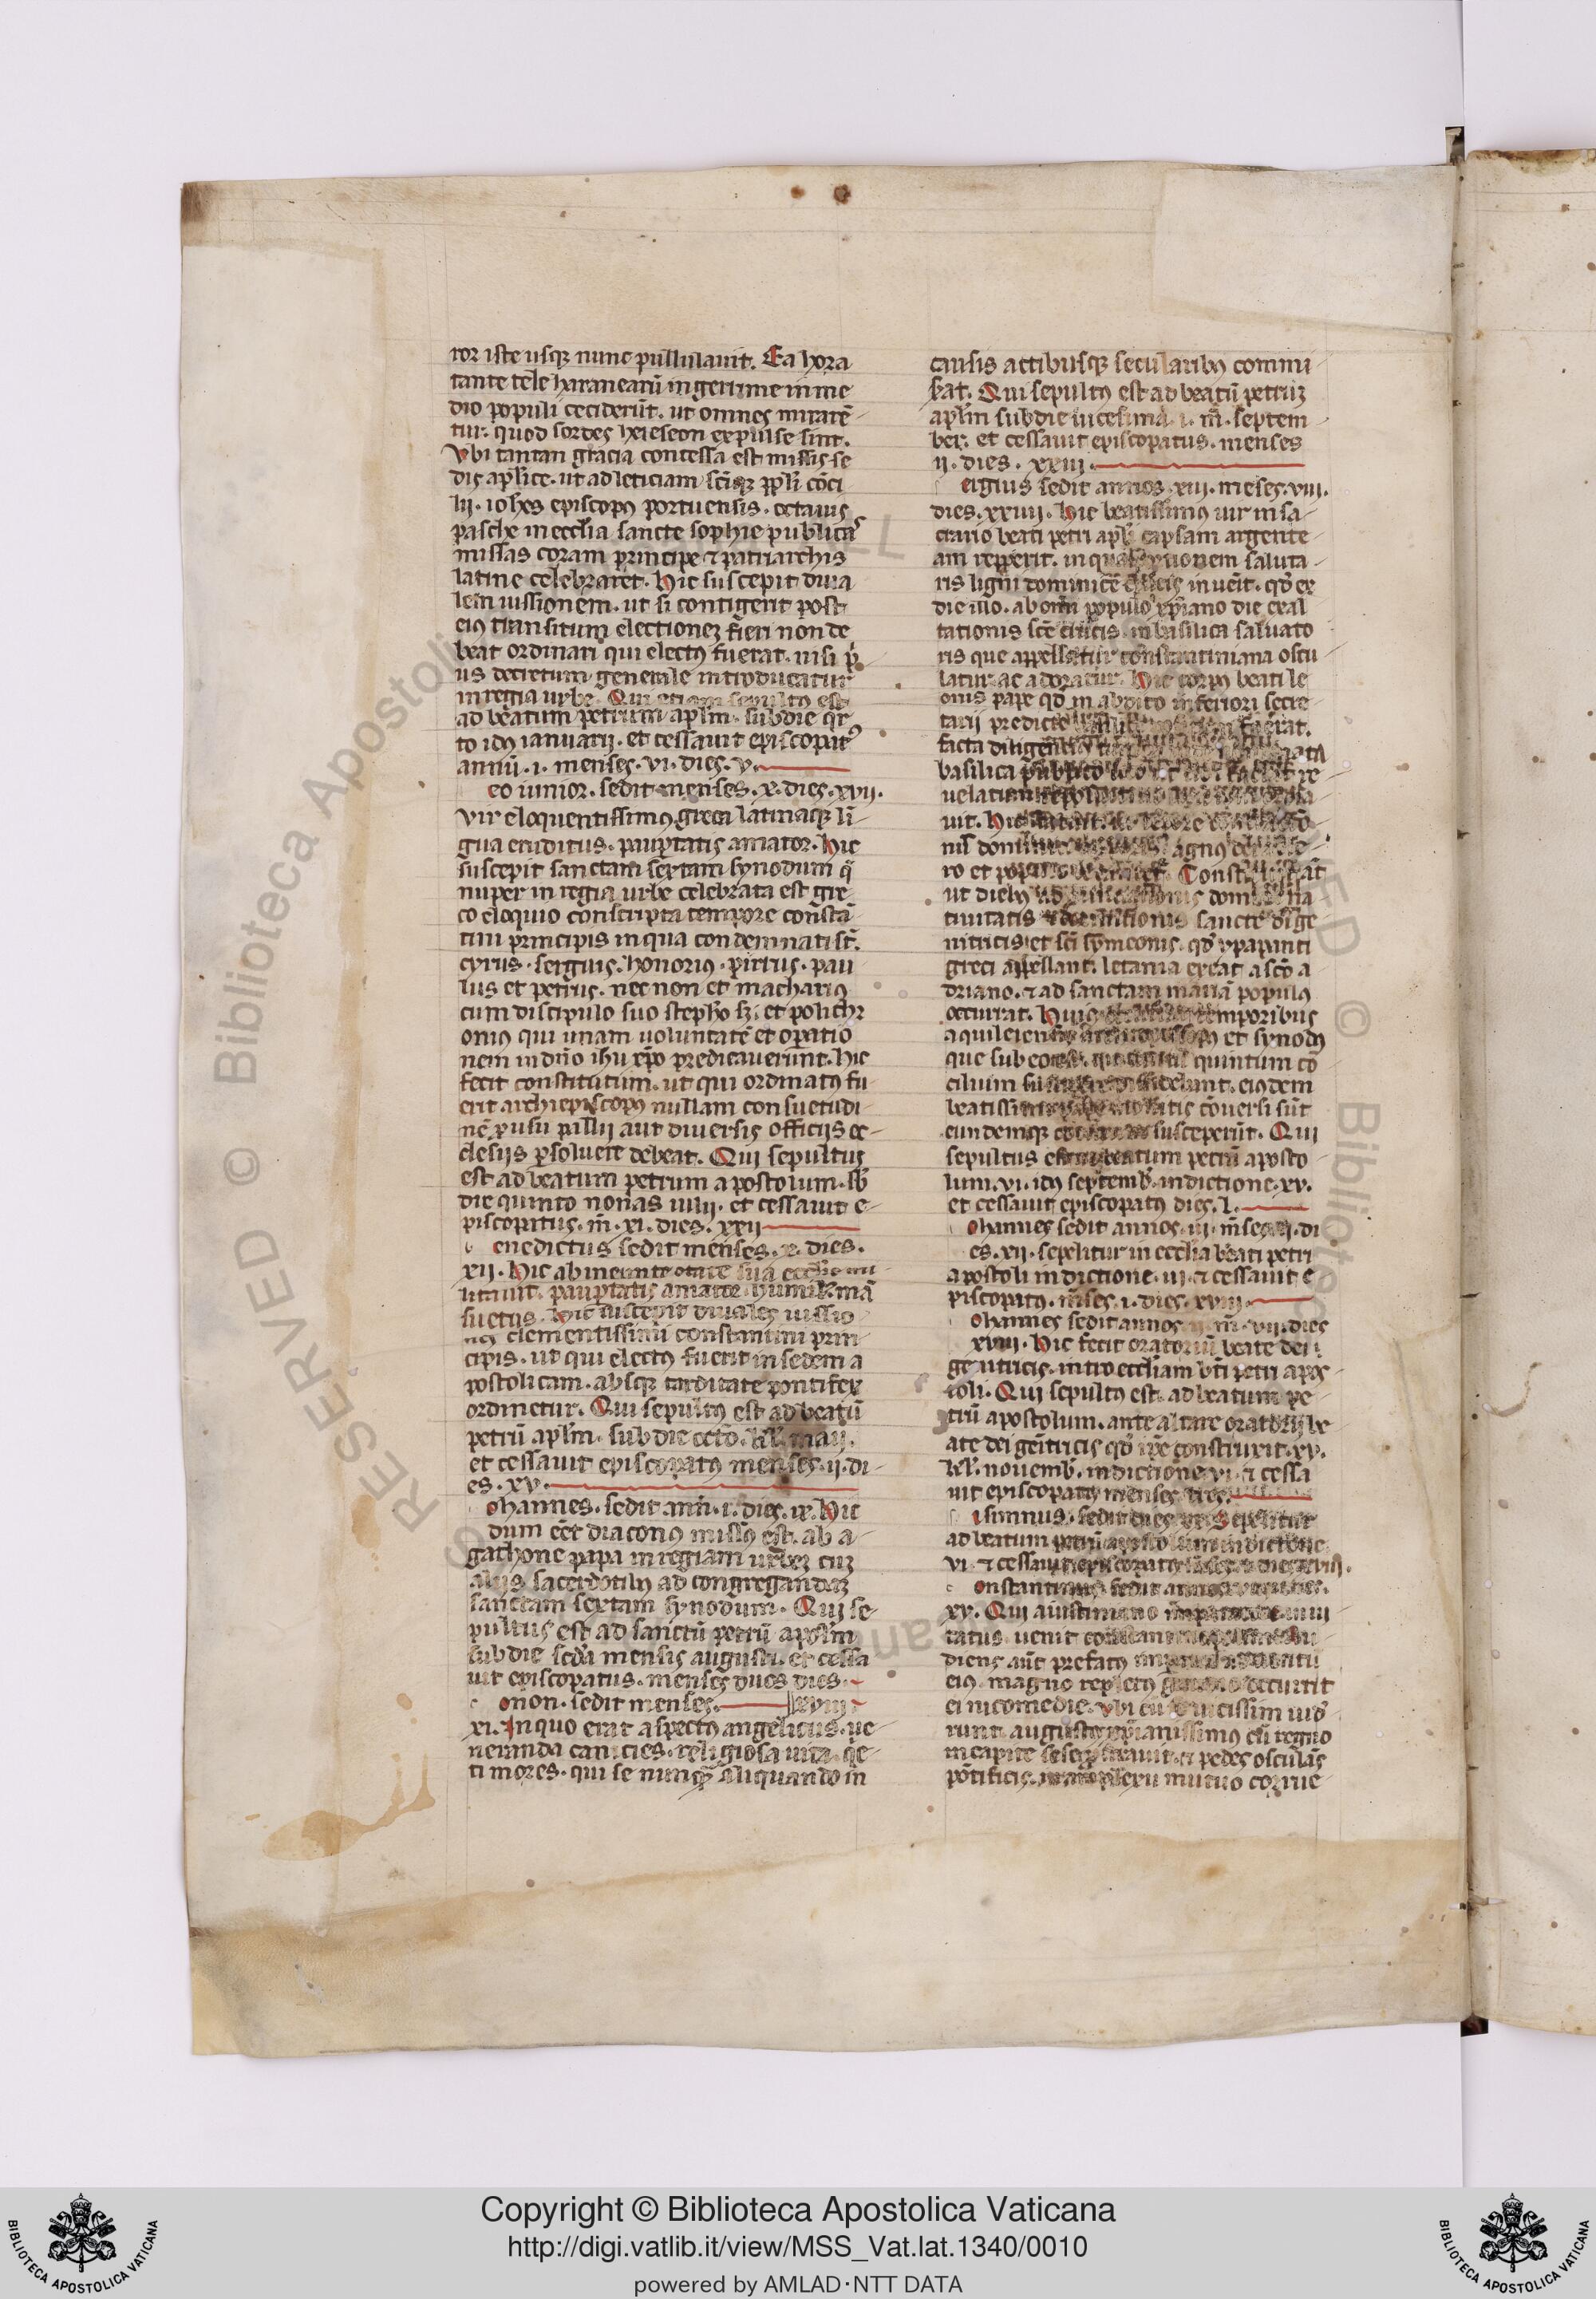 ror iste usqz nunc pullulauit. Ea hora
tante tele haranearū ingerrime in me
dio populi ceciderūt. ut omnes mirarē
tur. quod sordes hereseon expulse sint.
Vbi tantan gracia concessa est missis se
dis aplice. ut ad leticiam scīqz ppli cōci
lij. iohes episcopꝰ portuensis. octauis
pasche in ecclia sancte sophie publicas
missas coram principe ⁊ patriarchis
latine celebraret. Hic suscepit diua
lem iussionem. ut si contigerit post
eiꝰ transitum electionez fieri non de
beat ordinari qui electꝰ fuerat. nisi pͥ
us decretum generale introducatur
in regia urbe. Qui etiam sepultꝰ est
ad beatum petrum aplm. sub die qr
to idꝰ ianuarij. et cessauit episcopatꝰ
annū. i. menses. vi. dies. v.
eo iunior. sedit menses. x. dies. xvij.
vir eloquentissimꝰ greca latinaqz li
gua eruditus. paupertatis amator. Hic
suscepit sanctam sextam synodum q̄
nuper in regia urbe celebrata est gre
co eloquio conscripta tempore constā
tini principis in qua condemnati st̄.
cyrus. sergius. honoriꝰ. pirrus. pau
lus et petrus. nec non et machariꝰ
cum discipulo suo stepho sz. et polichr
onius qui unam uoluntatē et operatio
nem in dn̄o ihu xp̄o predicauerunt. hic
fecit constitutum. ut qui ordinatꝰ fu
erit archiepiscopꝰ nullam consuetudi
nē pro usu pallij aut diuersis officijs ec
clesijs persoluere debeat. Qui sepultus
est ad beatum petrum apostolum. sb
die quinto nonas iulij. et cessauit e
piscopatus. m̄. xi. dies. xxij
enedictus sedit menses. x. dies.
xij. Hic ab ineunte etate sua
paupertatis amator. humilis. mā
suetus. Hic suscepit diuales iussio
nes clementissimi constantini prin
cipis. ut qui electꝰ fuerit in sedem a
postolicam. absqz tarditate pontifex
ordinetur. Qui sepultꝰ est ad beatū
petrū aplm. sub die octō. kl. maij.
et cessauit episcopatꝰ menses. ij. di
es. xv.
ohannes. sedit an̄. i. dies. ix. Hic
dum eēt diaconꝰ missꝰ est. ab a
gathone papa in regiam urbez cuz
alijs sacerdotibꝰ ad congregandaz
sanctam sextam synodum. Qui se
pultus est ad sanctū petrū aplm
sub die scda mensis augusti. et cessa
uit episcopatus. menses duos dies.
onon. sedit menses. xviij
xi. In quo erat aspectꝰ angelicus. ue
neranda canicies. religiosa uita. qe
ti mores. qui se nunqz aliquando in
causis actibusqz secularibꝰ commi
scat. Qui sepultꝰ est ad beatū petruz
aplm sub die uicesima. i. m̄. septem
ber. et cessauit episcopatus. menses
ij. dies. xxiij.
ergius sedit annos. xiij. meses. viij.
dies. xxiiij. Hic beatissimus uir in sa
crario beati petri apli capsam argente
am repperit. in qua portionem saluta
ris ligni dominice crucis inuēit. qd ex
die illo. ab omi populo xp̄iano die exal
tationis sce crucis. in basilica saluato
ris que appellatur constantiniana oscu
latur ac adoratur. Hic corpꝰ beati le
onis pape qd in abdito inferiori secre
tarij predicte fuerat.
facta diligentia
basilica publico re
uelatum
uit. Hic
nis agnus dei
ro et populo Constituit
ut diebꝰ domini na
tiuitatis sancte di ge
nitricis et sci symeonis. qd ypapanti
greci appellant. letania exeat a scō a
driano. ⁊ ad sanctam mariā populꝰ
occurrat. Huiꝰ temporibus
aquileiensis et synodꝰ
que sub eo est. quintum cō
cilium eiꝰdem
beatissimi cōuersi sūt
eundemqz susceperūt. Qui
sepultus est ad beatum petrū aposto
lum. vi. idꝰ septemb. indictione. xv.
et cessauit episcopatꝰ dies. l.
ohannes sedit annos. iij. m̄ses. ij. di
es. xij. sepelitur in ecclia beati petri
apostoli indictione. iij. ⁊ cessauit e
piscopatꝰ. m̄ses. i. dies. xviij.
ohannes sedit annos. ij. m̄. vij. dies
xviij. Hic fecit oratoriū beate dei
genitricis. intro eccliam bti petri apos
toli. Qui sepultꝰ est. ad beatum pe
trū apostolum. ante altare oratorij be
ate dei genitricis qd ipe construxit. xv.
kl. nouemb. indictione. vi. ⁊ cessa
uit episcopatꝰ menses tres.
isinnus. sedit dies. xx. Sepelitur
ad beatum petrū apostolum indictione
vi. ⁊ cessauit episcopatꝰ
onstantinus sedit annos
xv. Qui a iustiniano imperatore inui
tatus uenit
diens aūt prefatꝰ
eiꝰ magno repletꝰ gaudio occurrit
ei nicomedie. vbi cū se uicissim uid
runt. augustꝰ xp̄ianissimus cū regno
in capite sese prostrauit. ⁊ pedes osculās
pōtificis. amplexu mutuo corrue
Copyright © Biblioteca Apostolica Vaticana
http://digi.vatlib.it/view/MSS_Vat.lat.1340/0010
powered by AMLAD·NTT DATA
BIBLIOTECA APOSTOLICA VATICANA
BIBLIOTECA APOSTOLICA VATICANA